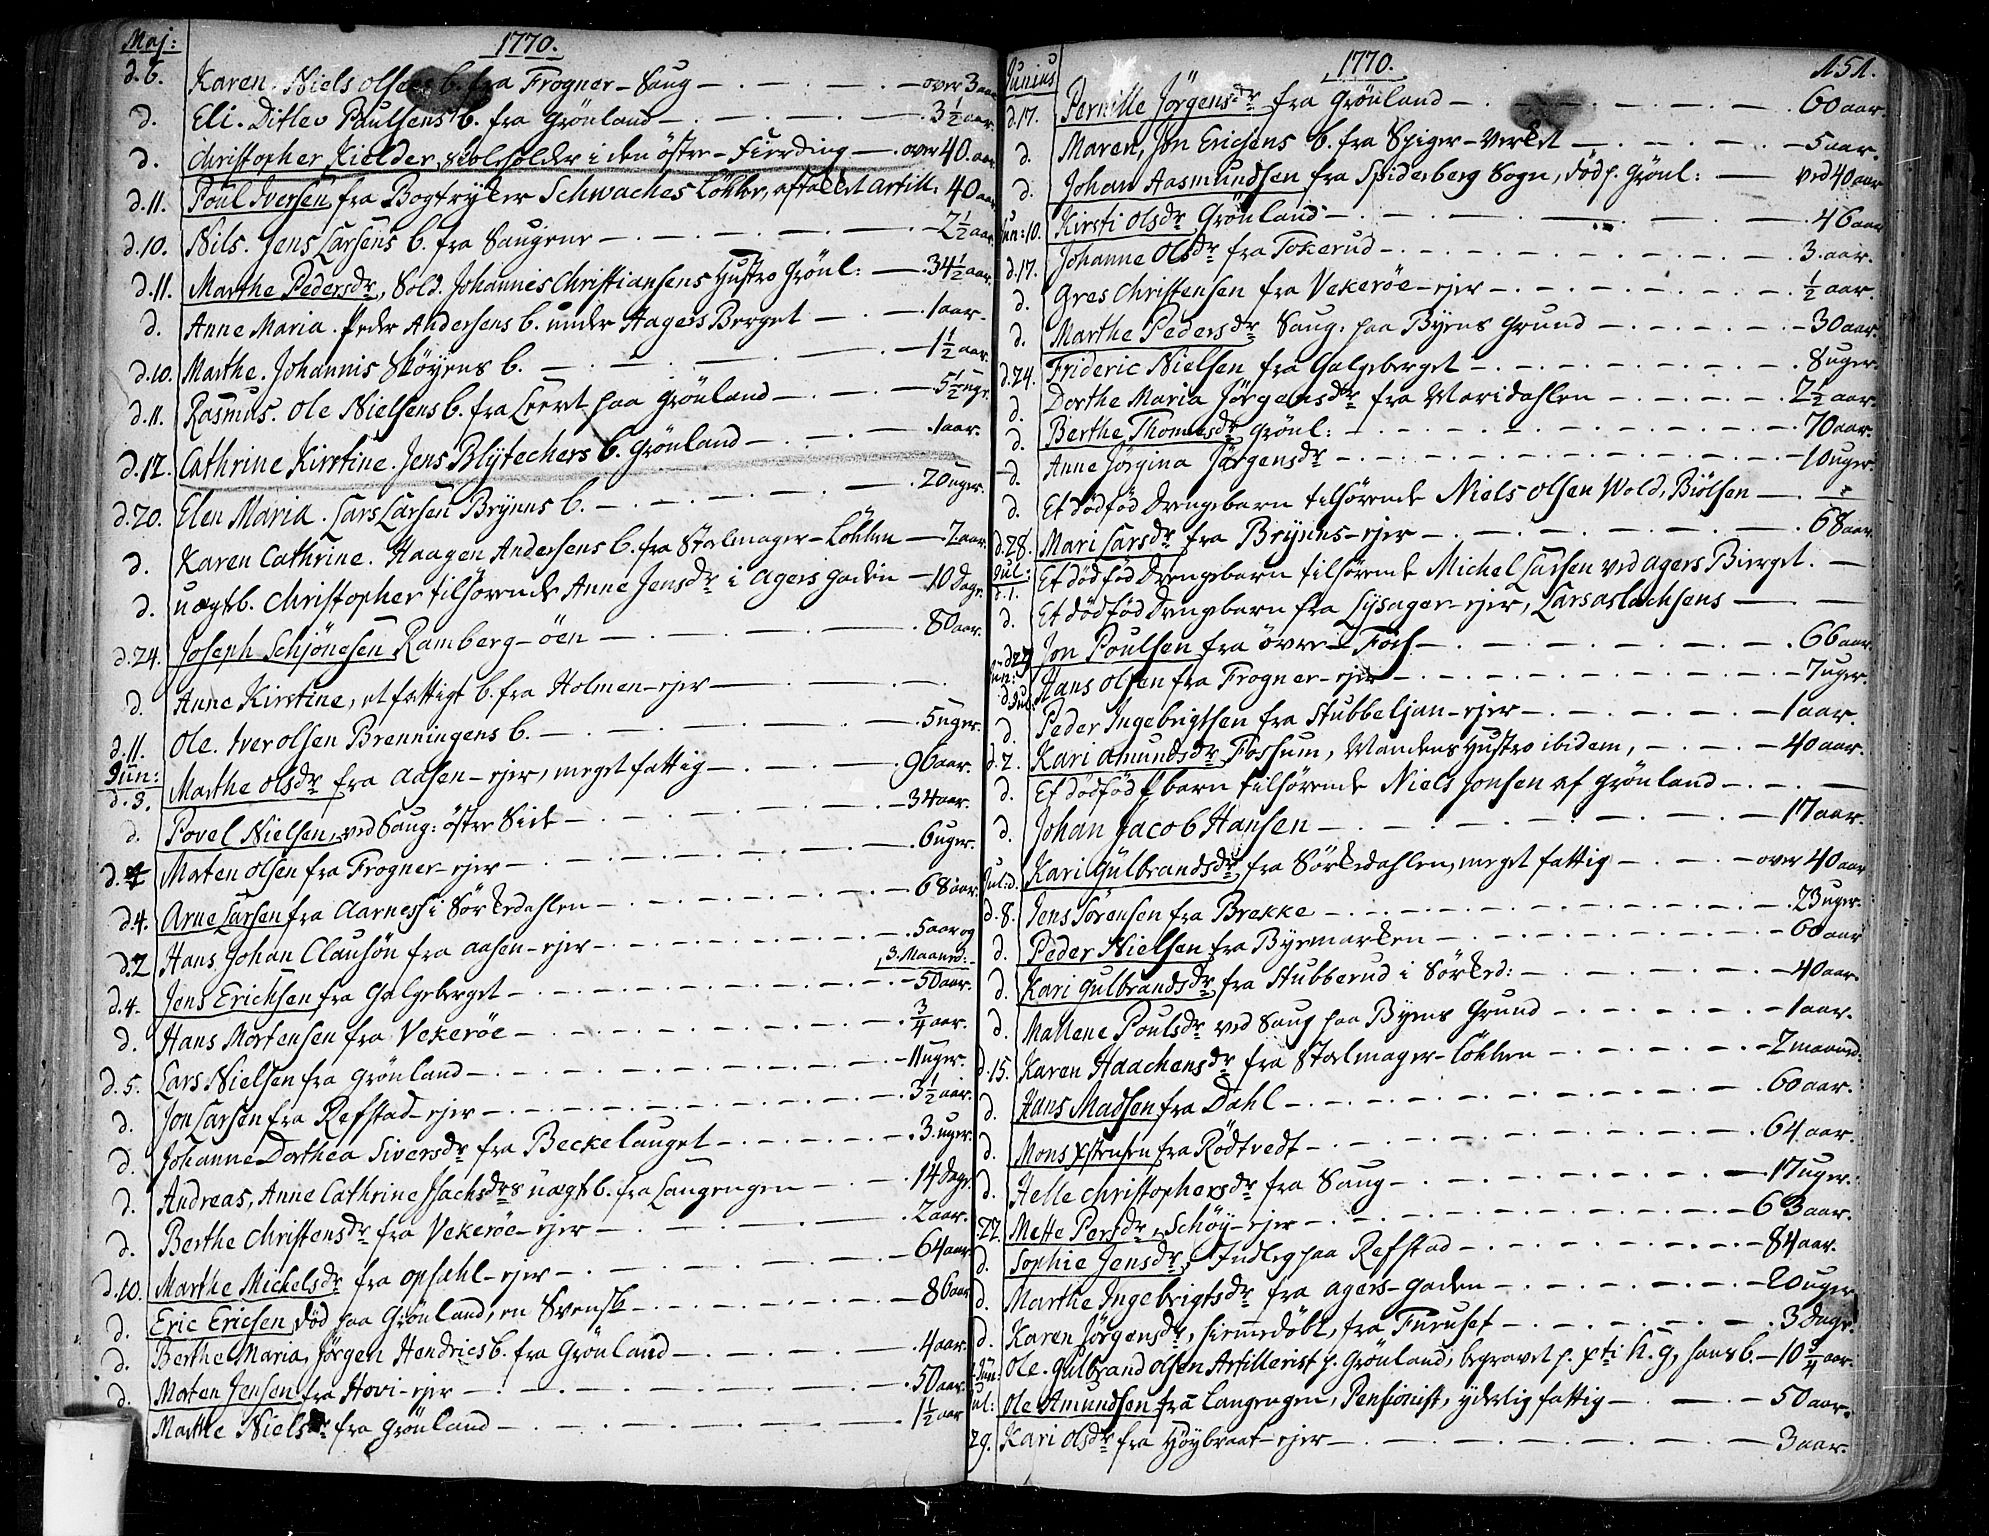 Maj: 1770.
d. 6. Karen. Niels Olsens b. fra Frogner-Saug over 3 aar
d. Eli. Ditlev Paulsens b. fra Grönland 3½ aar.
d. Christopher Kielder, Stolholder i den östre Fierding over 40. aar
d. 11. Poul Iversen, fra Bogtryker Schwaches Löhke, aftakket Artill: 40 aar
d. 10. Nils. Jens Larsens b. fra Saugene 2½ aar.
d. 11. Marthe Pedersdr, Sold. Johannes Christiansens Hustro Grönl: 34½ aar.
d. Anne Maria. Peder Andersens b. under Hagers Berget 1 aar.
d. 10. Marthe. Johannis Sköyens b. 1½ aar.
d. 11. Rasmus. Ole Nielsens b. fra Leeret paa Grönland 5½ uger.
d. 12. Cathrine Kirstine. Jens Blÿtechers b. Grönland 1 aar.
d. 20. Elen Maria. Lars Larsen Brÿnns b. 20 uger.
d. Karen Cathrine. Haagen Andersens b. fra Stalmager-Löhken 2. aar.
d. uægtb. Christopher tilhörende Anne Jensdr i Agers gaden 10 Dage.
d. 24. Joseph Schjönesen Ramberg-öen 80 aar.
d. Anne Kirstine, et fattigt b. fra Holmen-ejer
d. 11. Ole. Iver Olsen Brenningens b. 5 uger.
Jun: d. 3. Marthe Olsdr fra Aasen-ejer, meget fattig 96 aar.
d. Povel Nielsen, ved Saug: östre Side 34 aar.
d. 4 Morten Olsen fra Frogner-ejer 6 uger.
d. 4. Arne Larsen fra Aarnes i Sörkedahlen 68 aar.
d. 2 Hans Johan Clausön fra Aasen-ejer 5 aar og
3. Maaned:
d. 4. Jens Erichsen fra Galgeberget 50 aar.
d. Hans Mortensen fra Vekeröe ¾ aar.
d. 5. Lars Nielsen fra Grönland 11 uger.
d. Jon Larsen fra Refstad-ejer 3½ aar.
d. Johanne Dorthea Siversdr fra Beckelauget 3. uger.
d. Andreas, Anne Cathrine Isachsdrs uægtb. fra Langengen 14 Dage.
d. Berthe Christensdr fra Vekeröe-ejer 2 aar.
d. 10. Marthe Michelsdr fra Opsahl-ejer 64 aar
d. Eric Ericsen död paa Grönland, en Svensk 86 aar
d. Berthe Maria, Jörgen Hendrics b. fra Grönland 4 aar.
d. Morten Jensen fra Hovi-ejer 50 aar.
Marthe Nielsdr fra Grönland 1½ aar
Junius 1770. 151.
d. 17. Pernille Jörgensdr fra Grönland 60 aar.
d. Maren, Jon Ericsens b. fra Spiger-Verket 5 aar.
d. Johan Aasmundsen fra Spideberg Sogn, död p. Grönl: ved 40 aar
Jun: 10. Kirsti Olsdr Grönland 46 aar
d. 17. Johanne Olsdr fra Tokerud 3. aar.
d. Gres Christensen fra Vekeröe-ejer ½ aar.
d. Marthe Pedersdr Saug: paa Byens Grund 30 aar.
d. 24. Frideric Nielsen fra Galgeberget 8 uger.
d. Dorthe Maria Jörgensdr fra Maridahlen 2½ aar.
d. Berthe Thomesdr Grönl: 70 aar.
d. Anne Jörgina Jörgensdr 10 uger
d. Et dödföd Drengebarn tilhörende Niels Olsen Wold, Biölsen
d. 28. Mari Larsdr fra Brÿnns-ejer 68 aar.
Jul: d. 1. Et dödföd Drengebarn tilhörende Michel Larsen ved Agers Bierget.
d. Et dödföd Drengebarn fra Lysager-ejer, Lars Aslachsens
d. 27 Jon Poulsen fra övre Fos 66 aar.
Hans Olsen fra Frogner-ejer 7 uger.
d. Peder Ingebrigtsen fra Stubbeljan-ejer 1 aar.
d. 2. Kari Amundsdr Fossum, Mandens Hustro ibidem, 40 aar.
d. Et dödföd barn tilhörende Niels Jonsen af Grönland
d. Johan Jacob Hansen 17 aar.
Jul: d. Kari Gulbrandsdr fra Sörkedahlen, meget fattig over 40 aar
d. 8. Jens Sörensen fra Brekke 23 uger.
d. Peder Nielsen fra Byemarken 60 aar
d. Kari Gulbrandsdr fra Stubberud i Sörked: 40 aar.
d. Mallene Poulsdr ved Saug paa Byens Grund 1 aar.
d. 15. Karen Haachensdr fra Stalmager-Löhken 2 maaned:
d. Hans Madsen fra Dahl 60 aar.
d. Mons Xstensen fra Rödtvedt 64. aar.
d. Helle Christophersdr fra Saug 17 uger.
22. Mette Persdr Schöy-ejer 63 aar.
d. Sophie Jensdr, Indleg paa Refstad 84 aar.
d. Marthe Ingebrigtsdr fra Agers-Gaden 20 uger
d. Karen Jörgensdr, hiemedöbt, fra Furuset 3 Dage.
Jun: Ole. Gulbrand Olsen Artillerist p. Grönland, begravet p. Xti K. g, hans b. 10¾ aar.
Jul: Ole Amundsen fra Langengen, Pensionist, yderlig fattig 50 aar.
29. Kari Olsdr fra Höybraat-ejer 3 aar.